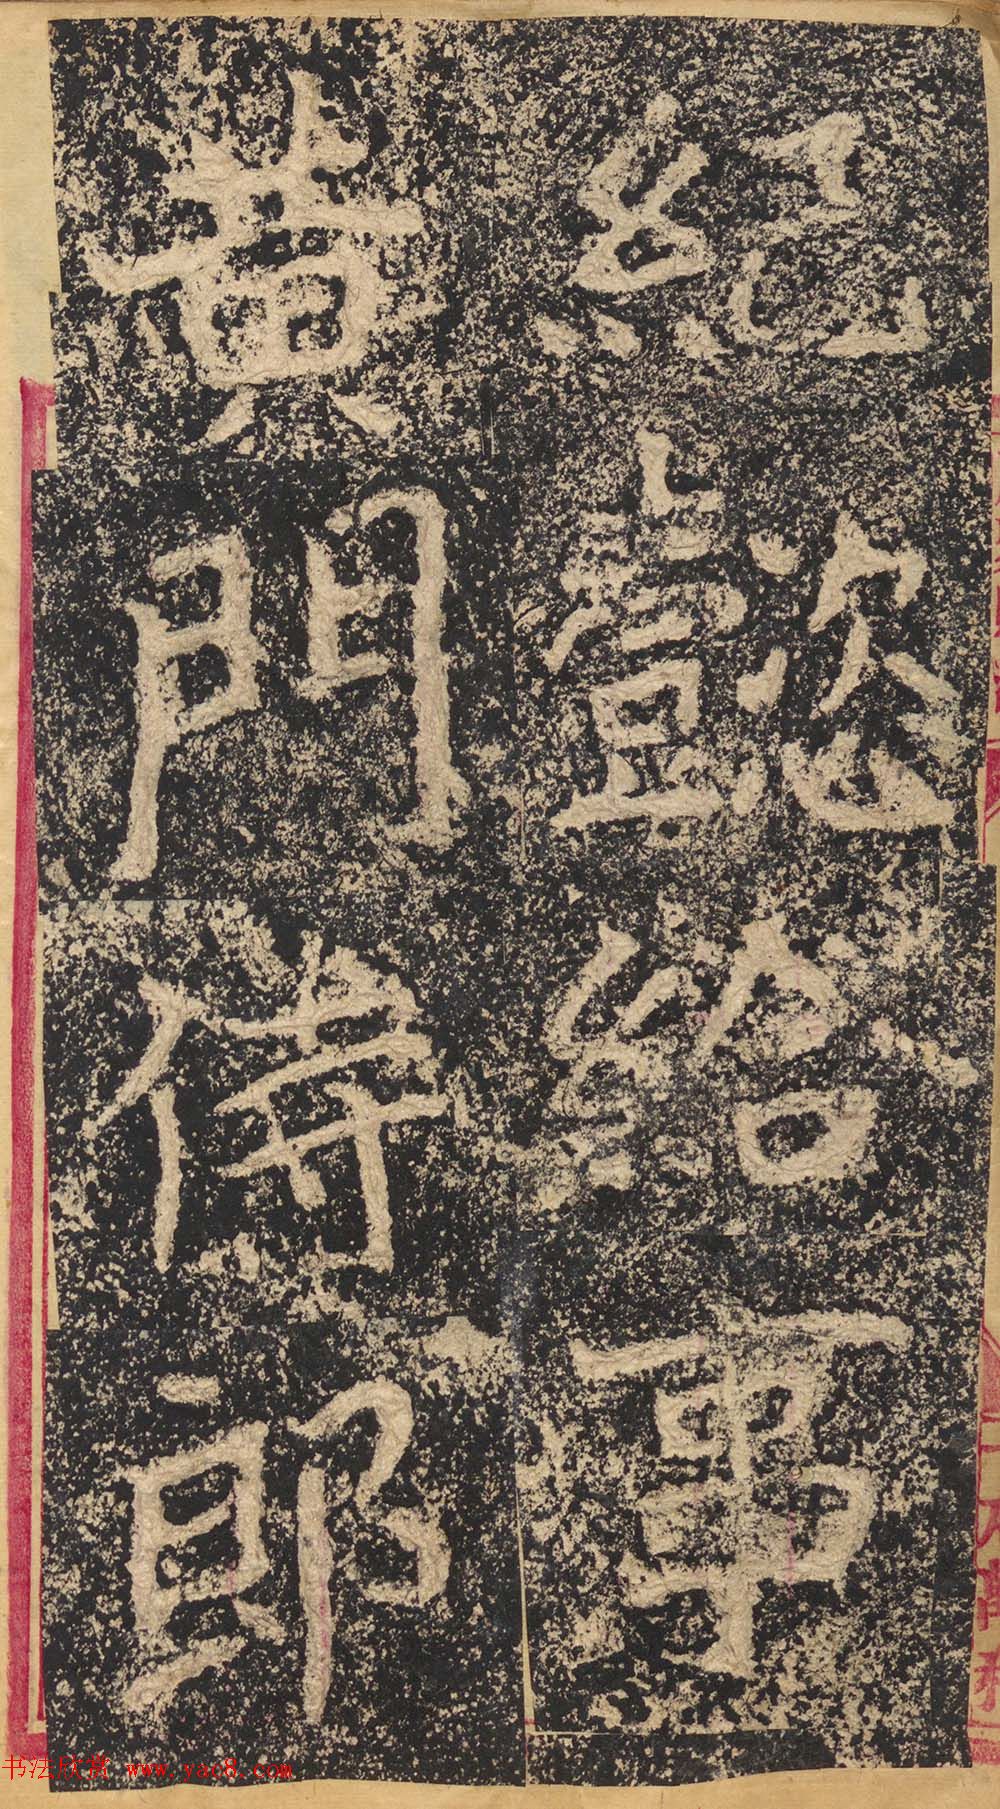 紀懿給事
黃門侍郎
书法欣赏 www.yac8.com